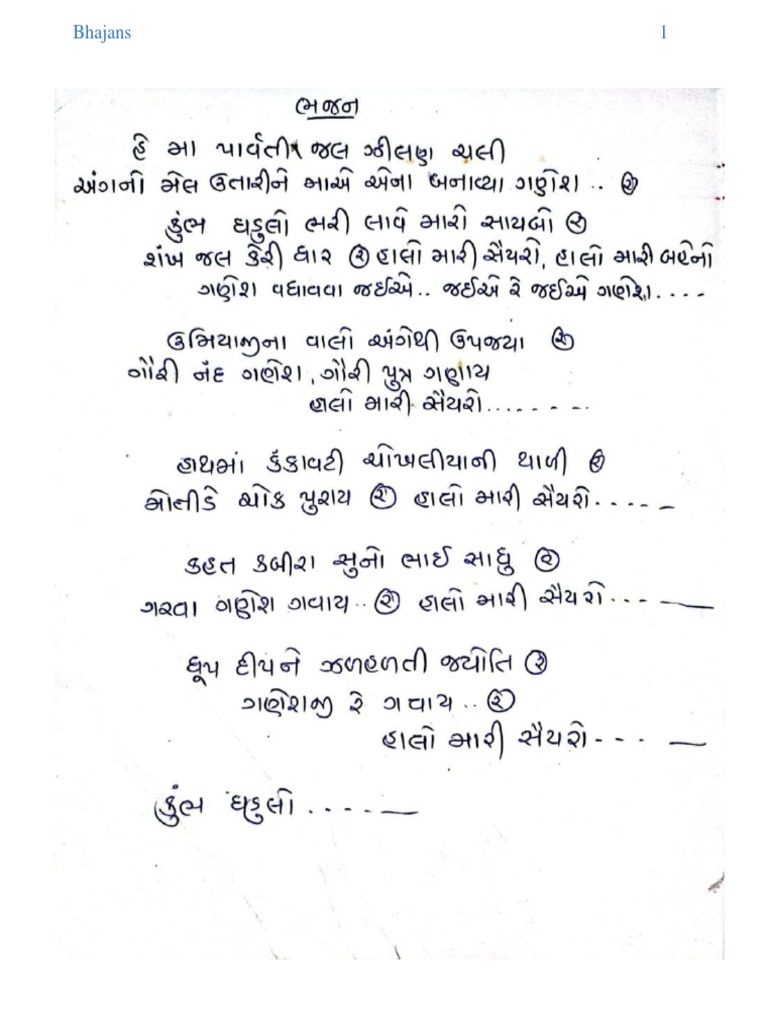 Bhajans 1
ભજન
હે મા પાર્વતી જલ ઝીલણ ચાલી
અંગનો મેલ ઉતારીને માએ એના બનાવ્યા ગણેશ .. ②
કુંભ ઘડુલો ભરી લાવે મારો સાયબો ②
શંખ જલ કેરી ધાર ② હાલો મારી સૈયરો, હાલો મારી બહેનો
ગણેશ વધાવવા જઈએ.. જઈએ રે જઈએ ગણેશ....
ઉમિયાજીના વાલો અંગેથી ઉપજ્યા ②
ગૌરી નંદ ગણેશ, ગૌરી પુત્ર ગણાય
હાલો મારી સૈયરો........
હાથમાં કંકાવટી ચોખલીયાની થાળી ②
મોતીડે ચોક પુરાય ② હાલો મારી સૈયરો.....
કહત કબીરા સુનો ભાઈ સાધુ ②
ગરવા ગણેશ ગવાય .. ② હાલો મારી સૈયરો....
ધૂપ દીપને ઝળહળતી જ્યોતિ ②
ગણેશજી રે ગવાય .. ②
હાલો મારી સૈયરો....
કુંભ ઘડુલો .....